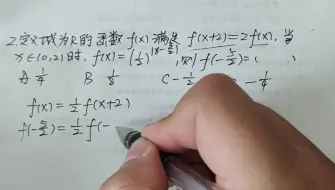 2.定义域为R的函数f(x)满足 f(x+2)=2f(x), 当
x∈(0,2)时, f(x)=(1/2)^|x-3/2|, 则f(-5/2)=( )
A 1/4 B 1/8 C -1/2 -1/4
f(x)=1/2 f(x+2)
f(-5/2)=1/2 f(-